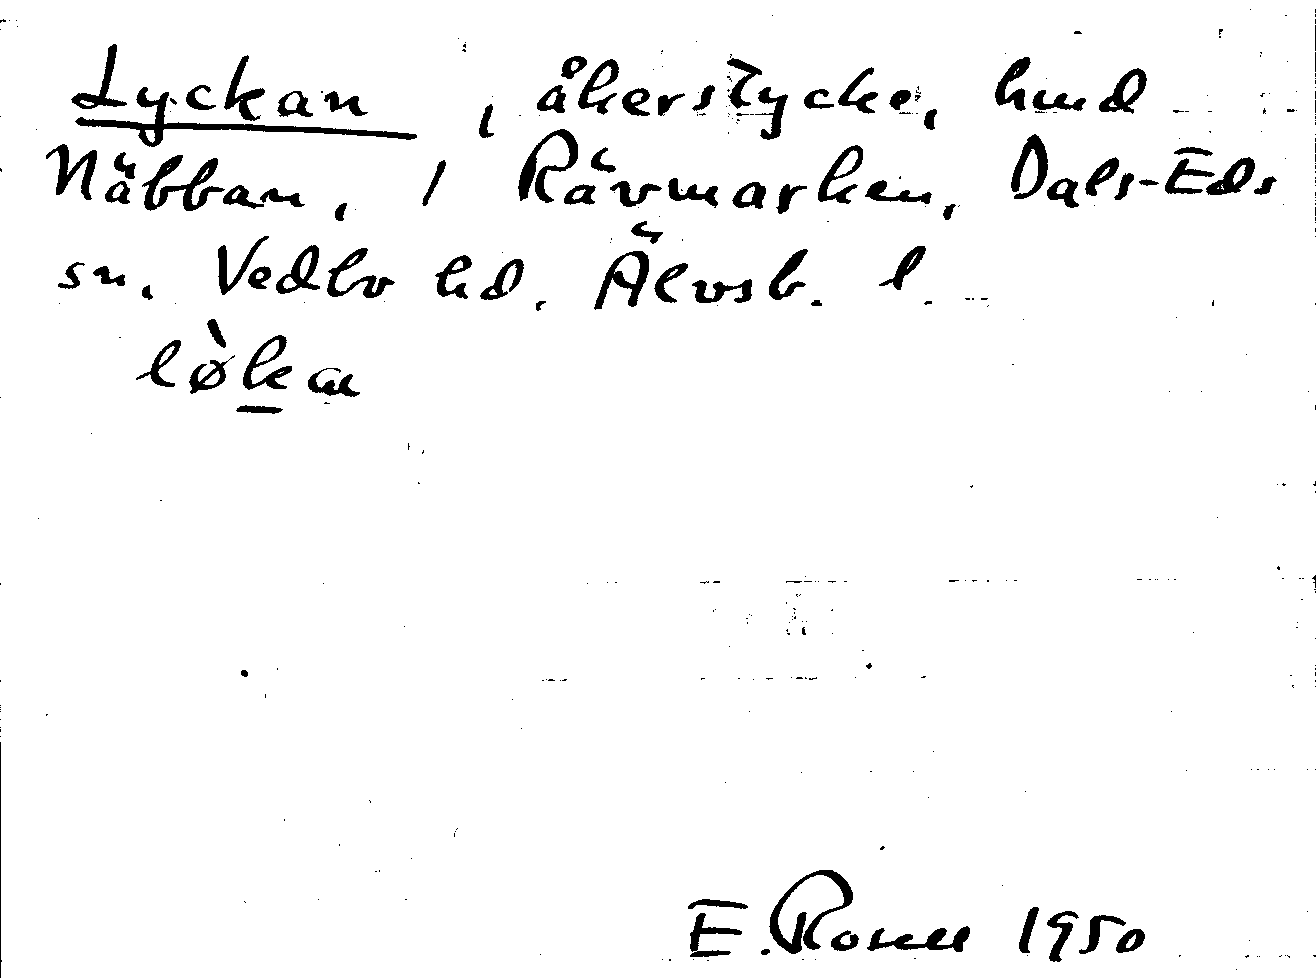 Lyckan, åkerstycke, hmd
Näbban, 1 Rävmarken, Dals-Eds
sn. Vedbo hd. Älvsb. l.
lø̀kan
E. Rosell 1950